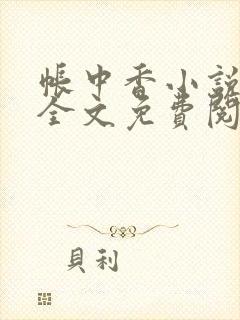 帳中香小說
全文免費閱
貝利